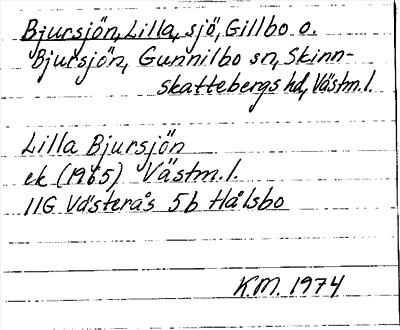 Bjursjön, Lilla, sjö, Gillbo o.
Bjursjön, Gunnilbo sn, Skinn-
skattebergs hd, Västm.l.
Lilla Bjursjön
ek (1965) Västm.l.
11G Västerås 5b Hålsbo
K.M. 1974